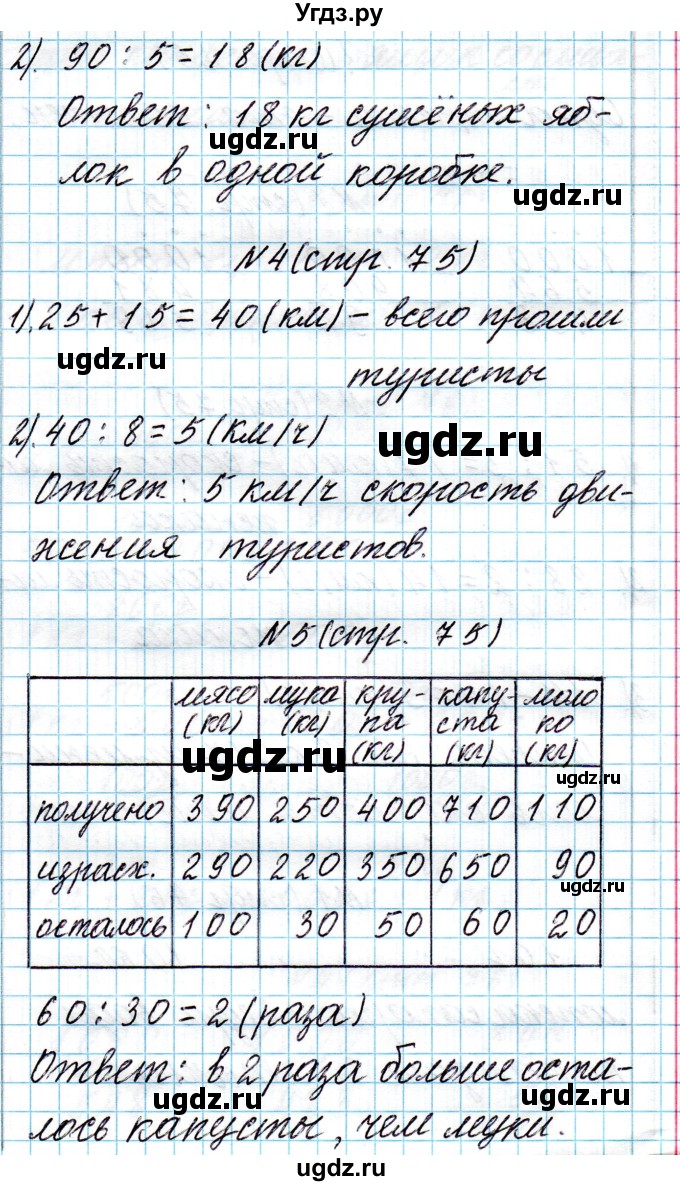 Угдз.ру
2). 90 : 5 = 18 (кг)
Ответ: 18 кг сушёных яб-
ugdz.ru
лок в одной коробке.
ugdz.ru
№4 (стр. 75)
1). 25 + 15 = 40 (км) – всего прошли
ugdz.ru
туристы
2). 40 : 8 = 5 (км/ч)
ugdz.ru
Ответ: 5 км/ч скорость дви-
жения туристов.
№5 (стр. 75)
мясо (кг) мука (кг) кру-па (кг) капу-ста (кг) моло ко (кг)
ugdz.ru
ugdz.ru
получено 390 250 400 710 110
израсх. 290 220 350 650 90
ugdz.ru
осталось 100 30 50 60 20
60 : 30 = 2 (раза)
Ответ: в 2 раза больше оста-
ugdz.ru
ugdz.ru
лось капусты, чем муки.
ugdz.ru